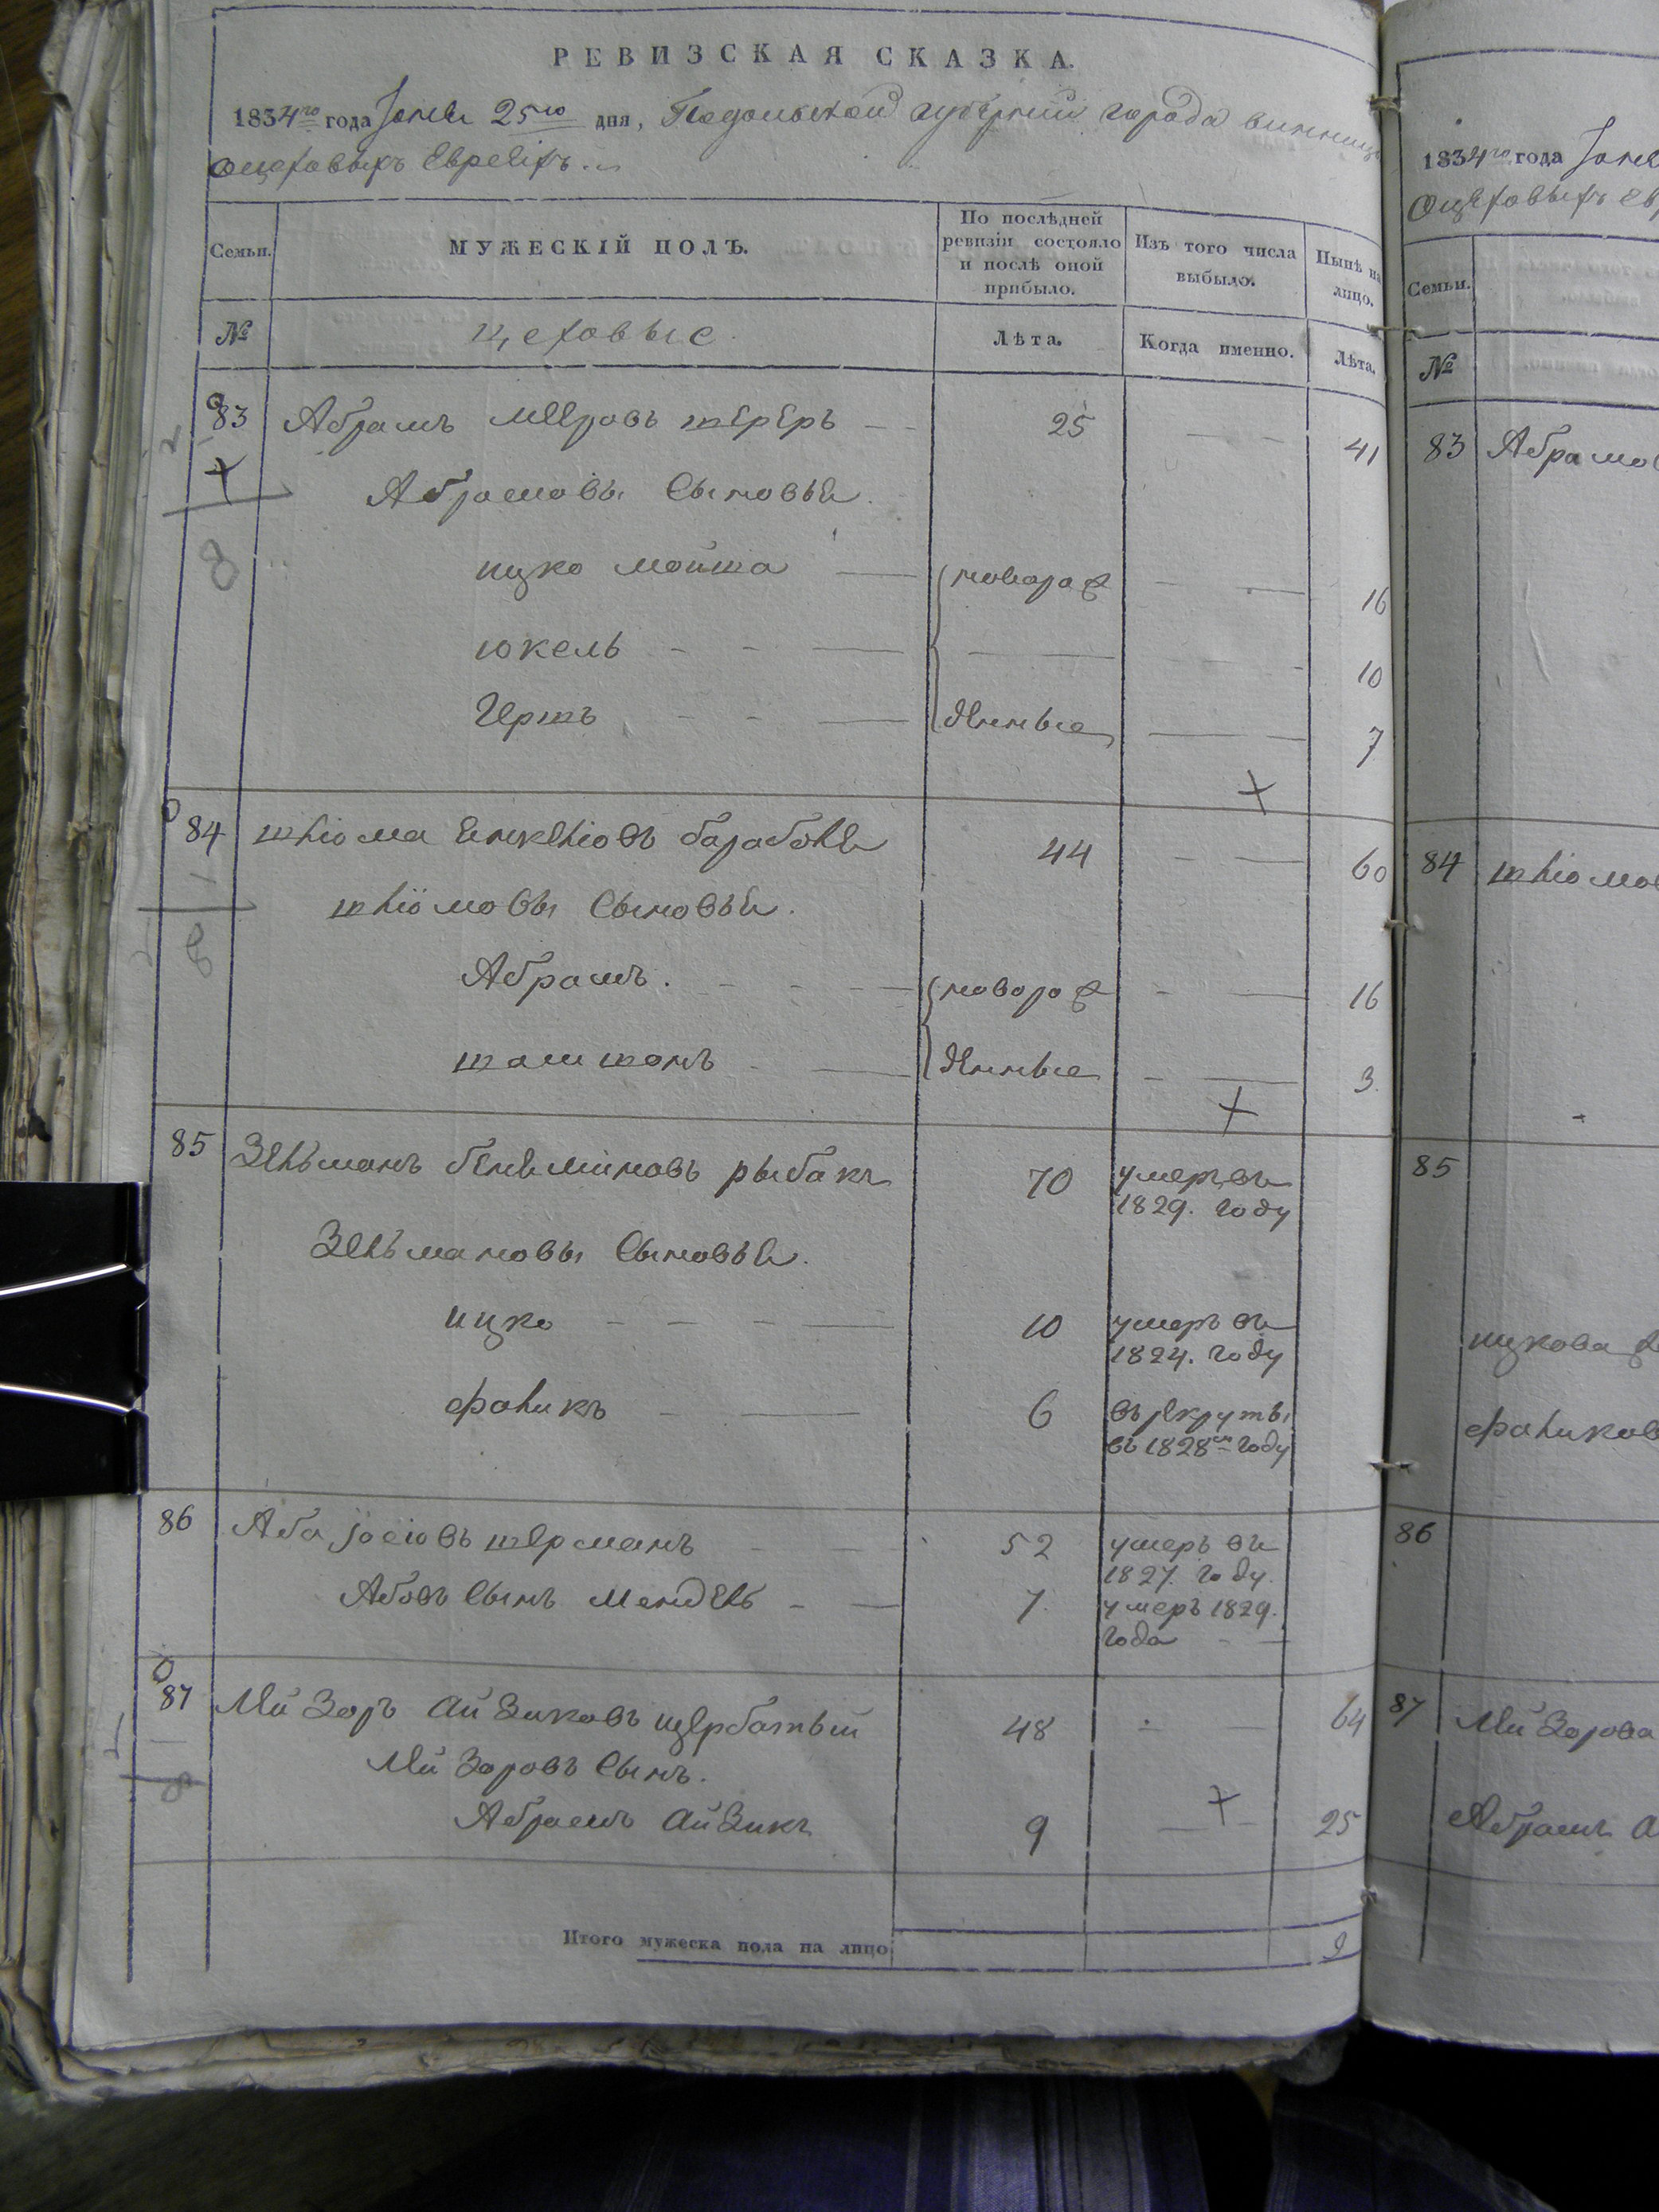 РЕВИЗСКАЯ СКАЗКА.
1834го года Іюня 25го дня, Подольской губерніи города винницы
Оцеховыхъ Евреяхъ
Семьи. МУЖЕСКІЙ ПОЛЪ. По послѣдней ревизіи состояло и послѣ оной прибыло. Изъ того числа выбыло. Нынѣ на лицо.
№ цеховые Лѣта. Когда именно. Лѣта.
83 Абрамъ мееровъ 25 41
Абрамовы Сыновья.
ицко мошка новорож 16
юкель 10
Гершъ денные 7
84 шліома Янкеліовъ 44 60
шліомовы Сыновья.
Абрамъ. новорож 16
денные 3
85 Зельманъ беняминовъ рыбакъ 70 умеръ въ
1829. году
Зельмановы Сыновья.
ицко 10 умеръ въ
1824. году
фаликъ 6 въ рекруты
въ 1828м году
86 Аба Іосіовъ шерманъ 52 умеръ въ
1827. году.
Абовъ Сынъ Мендель 7 умеръ 1829.
года
87 Лейзоръ Айзиковъ щербатый 48 64
Лейзоровъ Сынъ.
Абрамъ Айзикъ 9 25
Итого мужеска пола на лицо 9
1834го года
Семьи.
№
83
84
85
ицкова
86
87 Лейзорова
Абрамъ